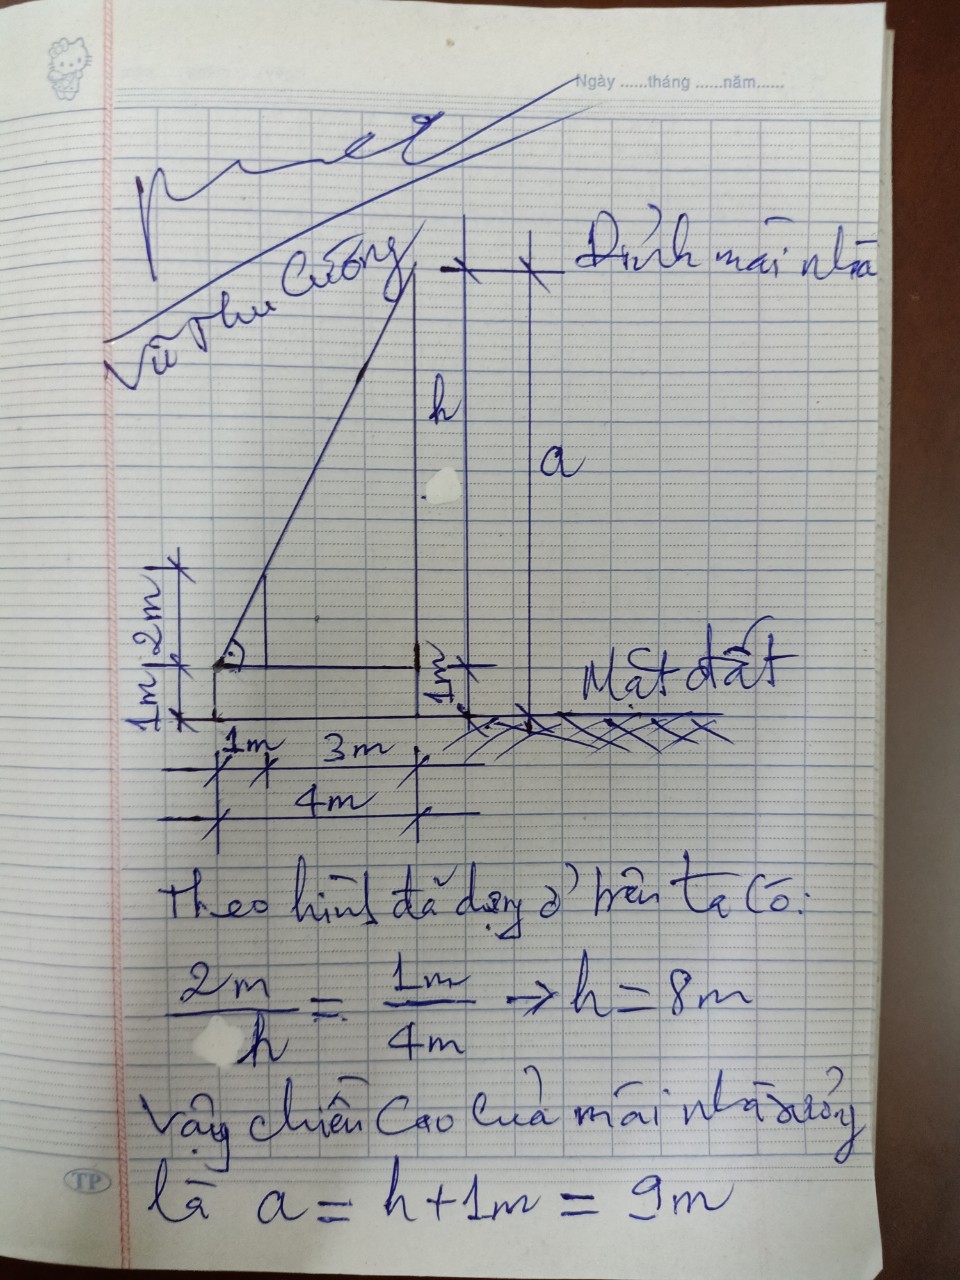 Ngày ......tháng ......năm......
Vũ Phu Cường
Đỉnh mái nhà
h
a
2m
1m
1m
Mặt đất
1m
3m
4m
Theo hình đã dựng ở trên ta có:
2m/h = 1m/4m → h = 8m
Vậy chiều cao của mái nhà xưởng
là a = h + 1m = 9m
TP